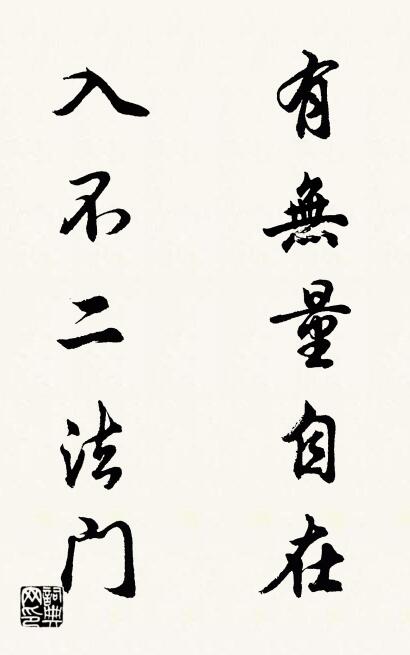 有無量自在
入不二法门
詞典
网印